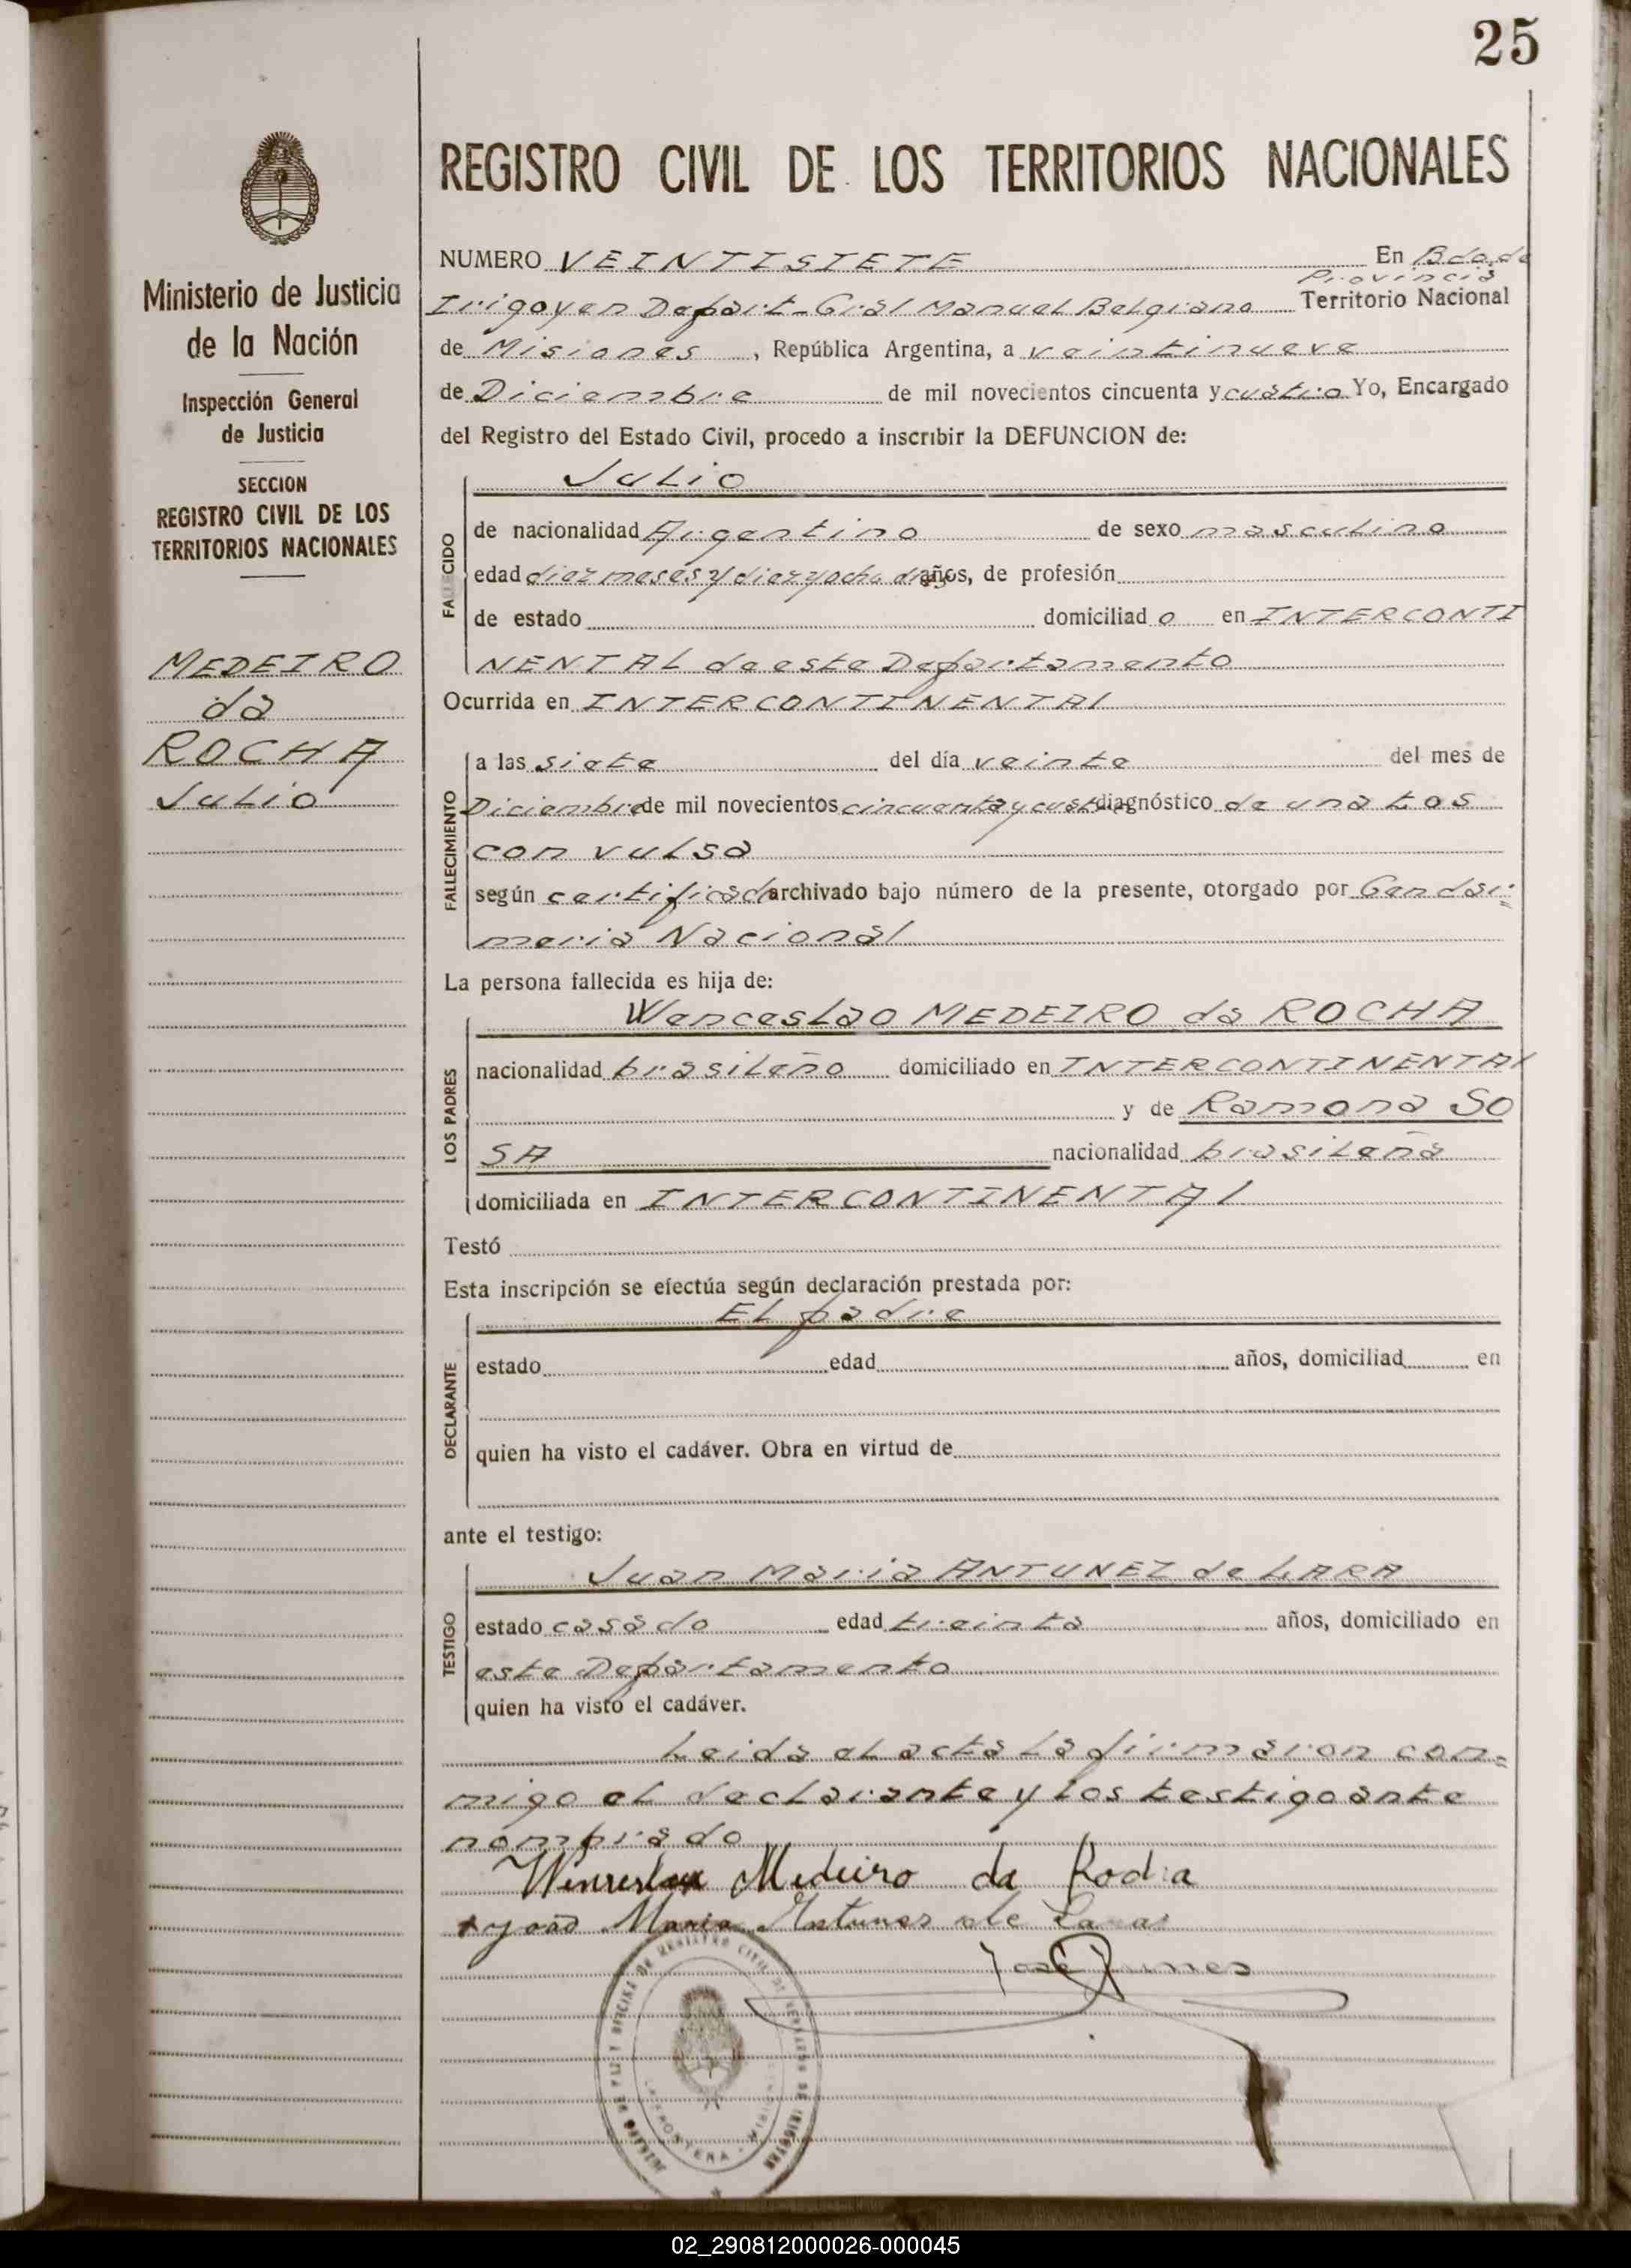 25
REGISTRO CIVIL DE LOS TERRITORIOS NACIONALES
Ministerio de Justicia
de la Nación
Inspección General
de Justicia
SECCION
REGISTRO CIVIL DE LOS
TERRITORIOS NACIONALES
MEDEIRO
da
ROCHA
Julio
NUMERO VEINTISIETE En Bdo. de
Provincia
Irigoyen Depart-Gral Manuel Belgrano Territorio Nacional
de Misiones, República Argentina, a veintinueve
de Diciembre de mil novecientos cincuenta y cuatro Yo, Encargado
del Registro del Estado Civil, procedo a inscribir la DEFUNCION de:
Julio
FALLECIDO
de nacionalidad Argentino de sexo masculino
edad diez meses y diez y ocho dias años, de profesión
de estado domiciliad o en INTERCONTI
NENTAL de este Departamento
Ocurrida en INTERCONTINENTAl
FALLECIMIENTO
a las siete del día veinte del mes de
Diciembre de mil novecientos cincuenta y cuatro diagnóstico de una tos
convulsa
según certificado archivado bajo número de la presente, otorgado por Gendar=
meria Nacional
La persona fallecida es hija de:
LOS PADRES
Wenceslao MEDEIRO da ROCHA
nacionalidad brasileño domiciliado en INTERCONTINENTAl
y de Ramona SO
SA nacionalidad brasileña
domiciliada en INTERCONTINENTAl
Testó
Esta inscripción se efectúa según declaración prestada por:
DECLARANTE
El padre
estado edad años, domiciliad en
quien ha visto el cadáver. Obra en virtud de
ante el testigo:
TESTIGO
Juan Maria ANTUNEZ de LARA
estado casado edad treinta años, domiciliado en
este Departamento
quien ha visto el cadáver.
Leida el acta la firmaron con=
migo el declarante y los testigo ante
nombrado
Medeiro da
Maria de
REGISTRO CIVIL
02_290812000026-000045